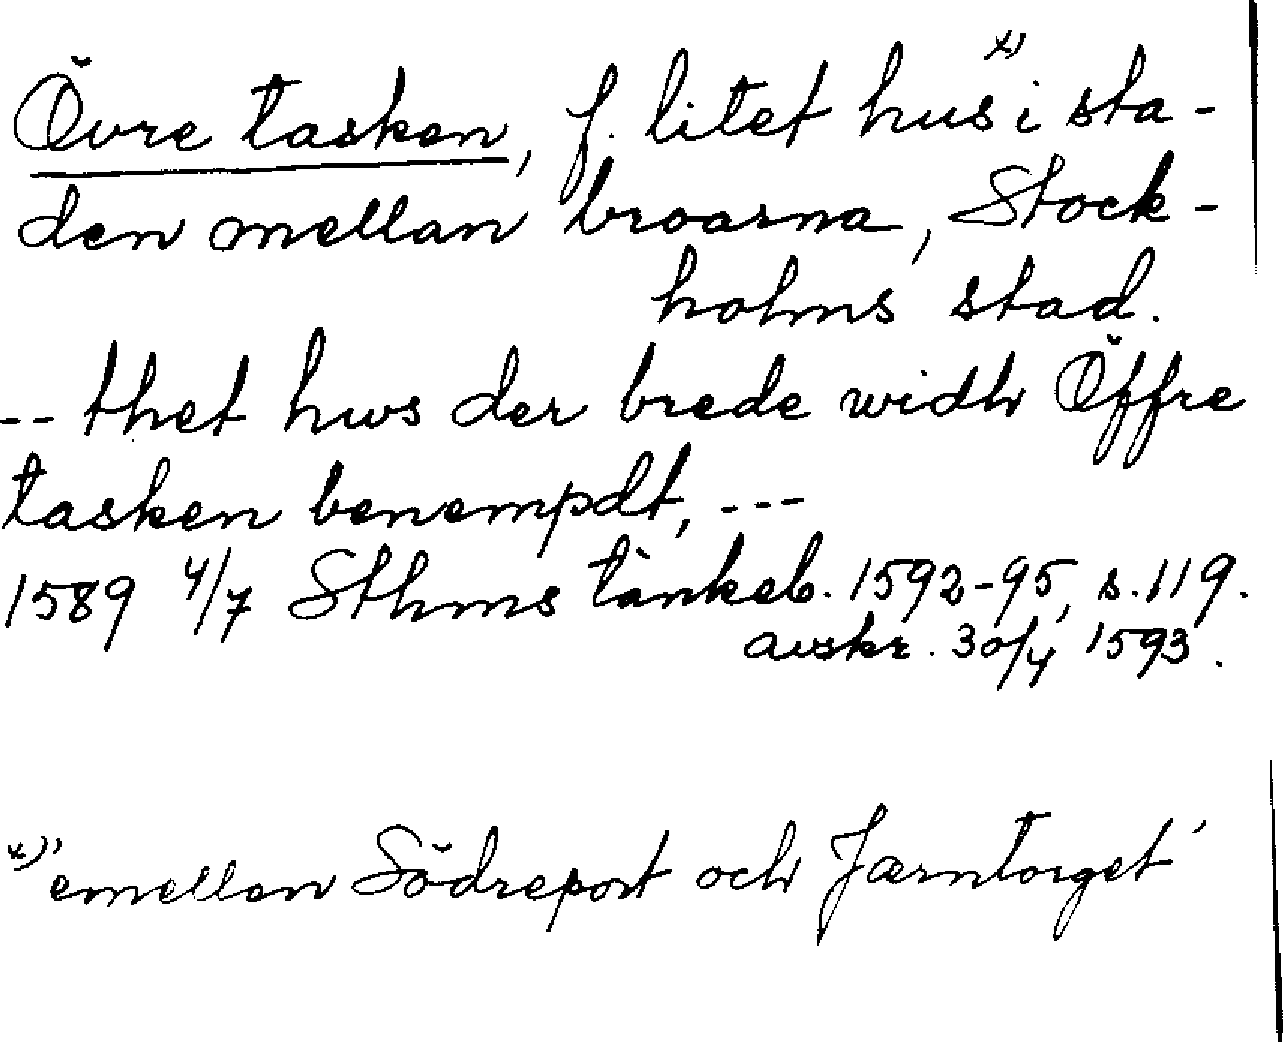 Övre tasken, f. litet hus x) i sta-
den mellan broarna, Stock-
holms stad.
-- thet hws der brede widh Öffre
tasken benempdt, ---
1589 4/7 Sthms tänkeb. 1592-95, s. 119.
avskr. 30/4 1593.
x) 'emellen Södreport och Jærntorget'